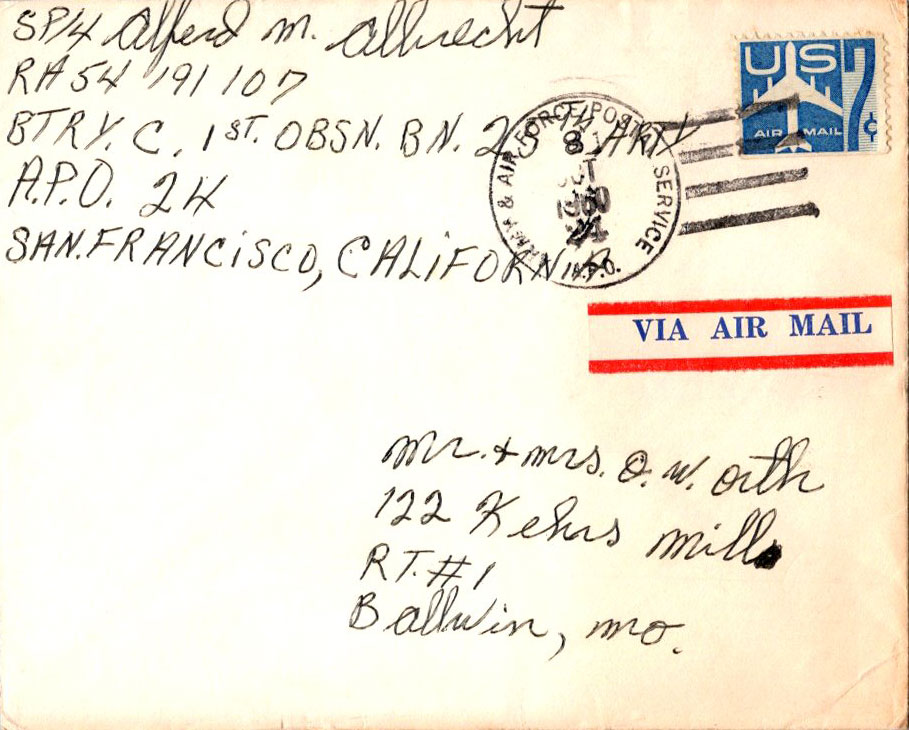 SP/4 Alferd M. Albrecht
RA 54 191 107
BTRY. C. 1ST. OBSN. BN. 25TH ARTY
A.P.O. 24
SAN. FRANCISCO, CALIFORNIA
ARMY & AIR FORCE POSTAL SERVICE
8
OCT
1960
24
A.P.O.
US 7¢
AIR MAIL
VIA AIR MAIL
Mr. + Mrs. O. W. Orth
122 Kehrs Mill
RT. #1
Ballwin, Mo.